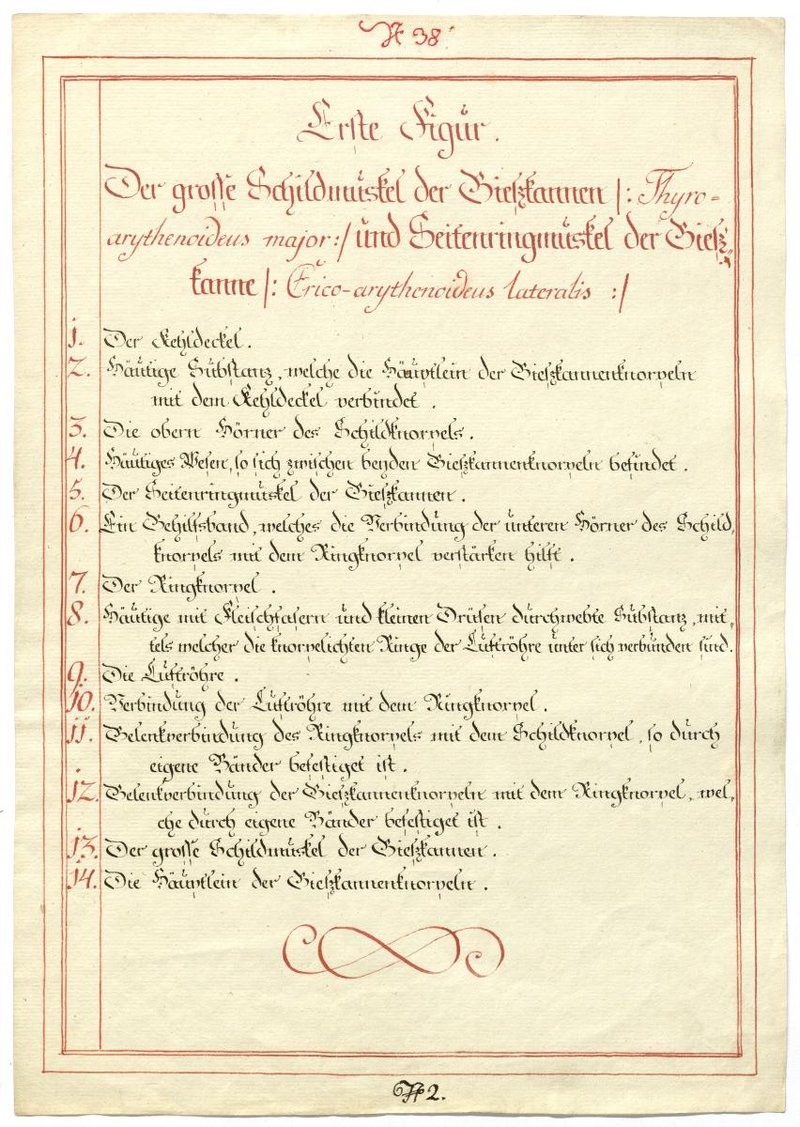 N 38.
Erste Figur.
Der grosse Schildmuskel der Gieszkannen /: Thyro=
arythenoideus major :/ und Seitenringmuskel der Giesz=
kanne /: Crico-arythenoideus lateralis :/
1. Der Kehldeckel.
2. Häutige Substanz, welche die Häuptlein der Gieszkannenknorpeln
mit dem Kehldeckel verbindet.
3. Die obern Hörner des Schildknorpels.
4. Häutiges Wesen, so sich zwischen beyden Gieszkannenknorpeln befindet.
5. Der Seitenringmuskel der Gieszkannen.
6. Ein Gehilfsband, welches die Verbindung der unteren Hörner des Schild,
knorpels mit dem Ringknorpel verstärken hilft.
7. Der Ringknorpel.
8. Häutige mit Fleischfasern und kleinen Drüsen durchwebte Substanz, mit,
tels welcher die knorpelichten Ringe der Luftröhre unter sich verbunden sind.
9. Die Luftröhre.
10. Verbindung der Luftröhre mit dem Ringknorpel.
11. Gelenkverbindung des Ringknorpels mit dem Schildknorpel, so durch
eigene Bänder befestiget ist.
12. Gelenkverbindung der Gieszkannenknorpeln mit dem Ringknorpel, wel,
che durch eigene Bänder befestiget ist.
13. Der grosse Schildmuskel der Gieszkannen.
14. Die Häuptlein der Gieszkannenknorpeln.
N 2.